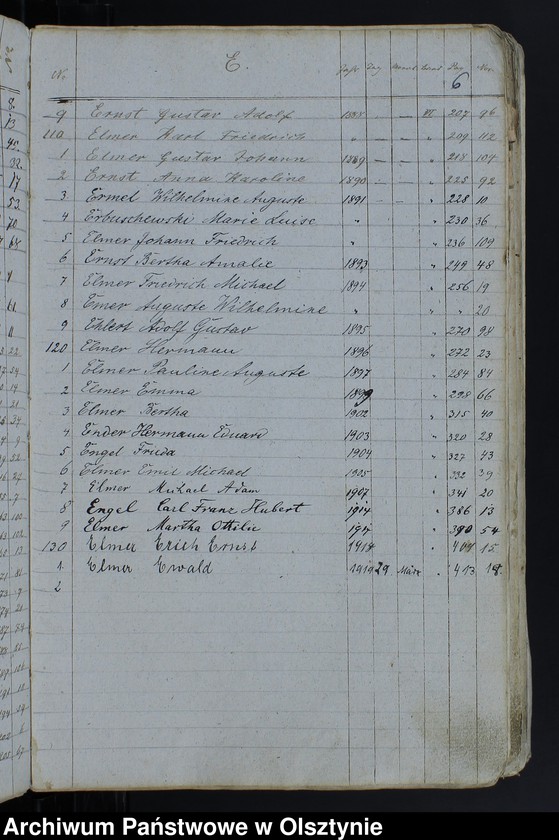 No. E. Jahr Tag Monat Band Pag Nro.
6
9 Ernst Gustav Adolf 1888 — — VI 207 96
110 Elmer Karl Friedrich " — — " 209 112
1 Elmer Gustav Johann 1889 — — " 218 104
2 Ernst Anna Karoline 1890 — — " 225 92
3 Ermel Wilhelmine Auguste 1891 — — " 228 10
4 Erbuschewski Marie Luise " " 230 36
5 Elmer Johann Friedrich " " 236 109
6 Ernst Bertha Amalie 1893 " 249 48
7 Elmer Friedrich Michael 1894 " 256 19
8 Elmer Auguste Wilhelmine " " " 20
9 Ehlert Adolf Gustav 1895 " 270 98
120 Elmer Hermann 1896 " 272 23
1 Elmer Pauline Auguste 1897 " 284 84
2 Elmer Emma 1899 " 298 66
3 Elmer Bertha 1902 " 315 40
4 Ender Hermann Eduard 1903 " 320 28
5 Engel Frieda 1904 " 327 43
6 Elmer Emil Michael 1905 " 332 39
7 Elmer Michael Adam 1907 " 341 20
8 Engel Carl Franz Hubert 1914 " 386 13
9 Elmer Martha Ottilie " 390 54
130 Elmer Erich Ernst " 15
1 Elmer Ewald 1919 29 März " 413 18.
2
Archiwum Państwowe w Olsztynie